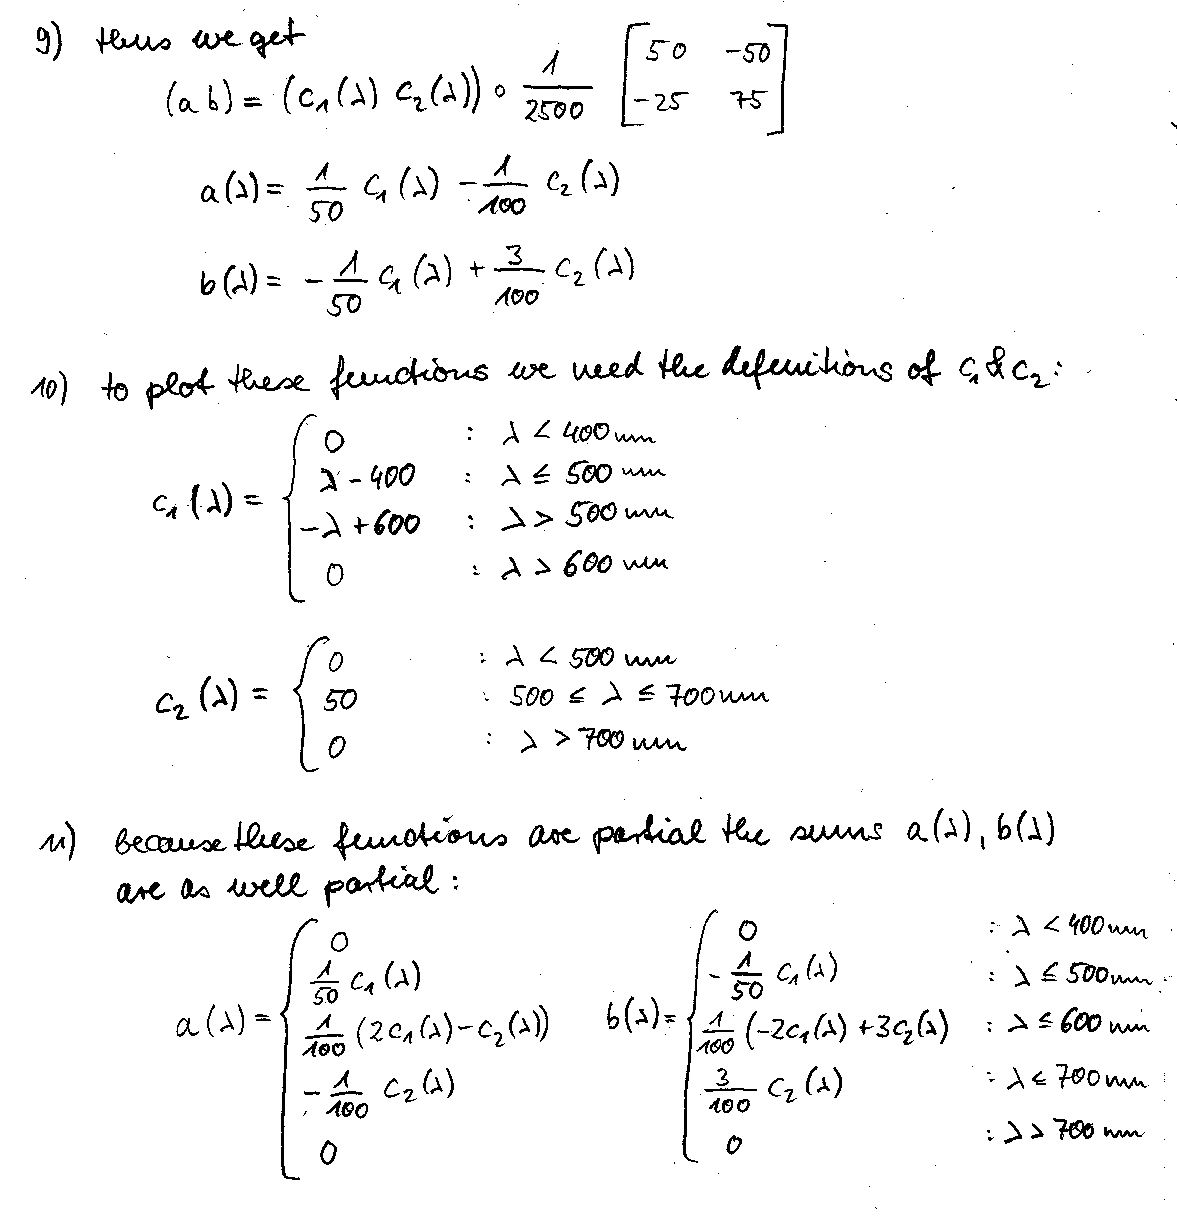 9) thus we get
(a b) = (c₁(λ) c₂(λ)) ∘ 1/2500 [50 -50; -25 75]
a(λ) = 1/50 c₁(λ) - 1/100 c₂(λ)
b(λ) = - 1/50 c₁(λ) + 3/100 c₂(λ)
10) to plot these functions we need the definitions of c₁ & c₂:
c₁(λ) = {
0 : λ < 400nm
λ - 400 : λ ≤ 500 nm
-λ + 600 : λ > 500 nm
0 : λ > 600 nm
c₂(λ) = {
0 : λ < 500 nm
50 : 500 ≤ λ ≤ 700nm
0 : λ > 700 nm
11) because these functions are partial the sums a(λ), b(λ)
are as well partial:
a(λ) = { b(λ) = {
0 0 : λ < 400nm
1/50 c₁(λ) - 1/50 c₁(λ) : λ ≤ 500nm
1/100 (2c₁(λ) - c₂(λ)) 1/100 (-2c₁(λ) + 3c₂(λ) : λ ≤ 600 nm
- 1/100 c₂(λ) 3/100 c₂(λ) : λ ≤ 700nm
0 0 : λ > 700 nm